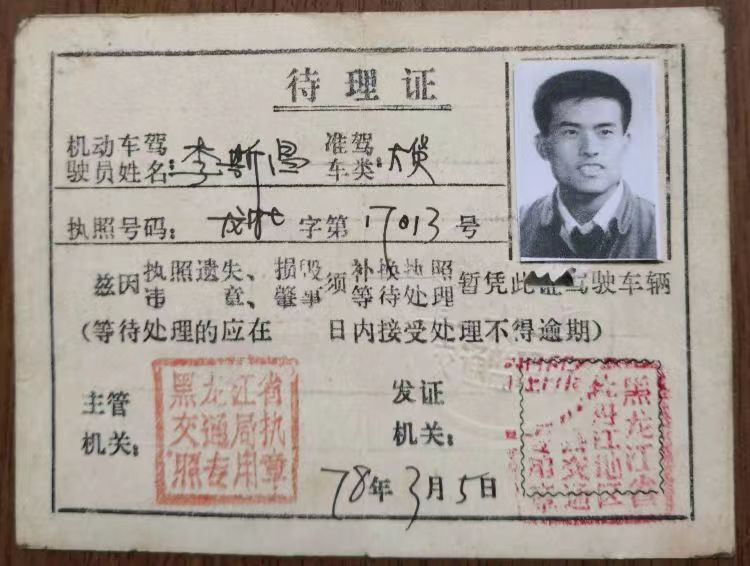 待理证
机动车驾驶员姓名：李斯昌 准驾车类：大货
执照号码： 字第17013号
兹因执照遗失、损毁须补换执照暂凭此证驾驶车辆
违章、肇事 等待处理
(等待处理的应在 日内接受处理不得逾期)
主管机关：
黑龙江省
交通局执
照专用章
发证机关：
黑龙江省
牡丹江地区
78年3月5日